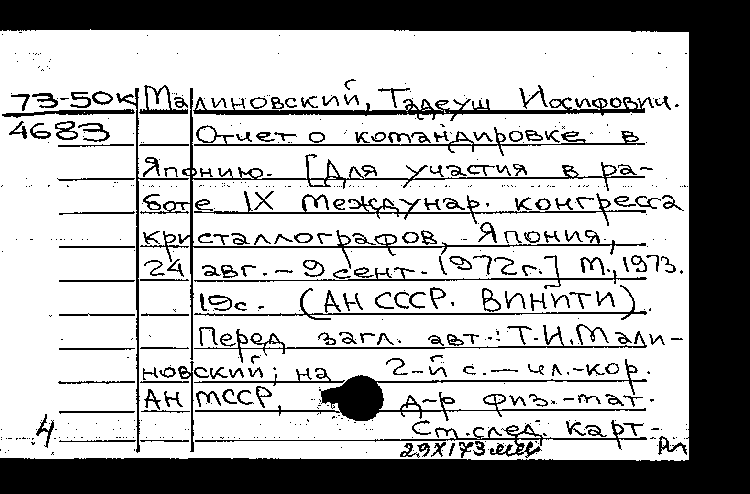 73-50к Малиновский, Тадеуш Иосифович.
4683 Отчет о командировке в
Японию. [Для участия в ра-
боте IX Междунар. конгресса
кристаллографов, Япония,
24 авг. - 9 сент. 1972г.] М., 1973.
19с. (АН СССР. ВИНИТИ).
Перед загл. авт.: Т.И.Мали-
новский; на 2-й с. — чл.-кор.
АН МССР, д-р физ.-мат.
4 Ст. след. карт-
29X173мм